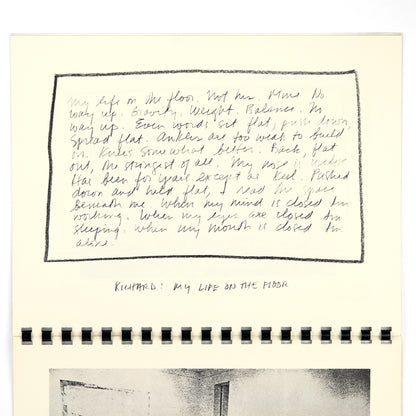 My life on the floor. Not me. Mine. No
way up. Gravity. Weight. Balance. No
way up. Even words sit flat, push down,
spread flat. Ankles are too weak to build
on. Knees somewhat better. Back, flat
out, the strongest of all. My nose is
Has been for years except as keel. Pushed
down and held flat, I read the space
beneath me. When my mind is closed I'm
working. When my eyes are closed I'm
sleeping. When my mouth is closed I'm
alive.
RICHARD: MY LIFE ON THE FLOOR